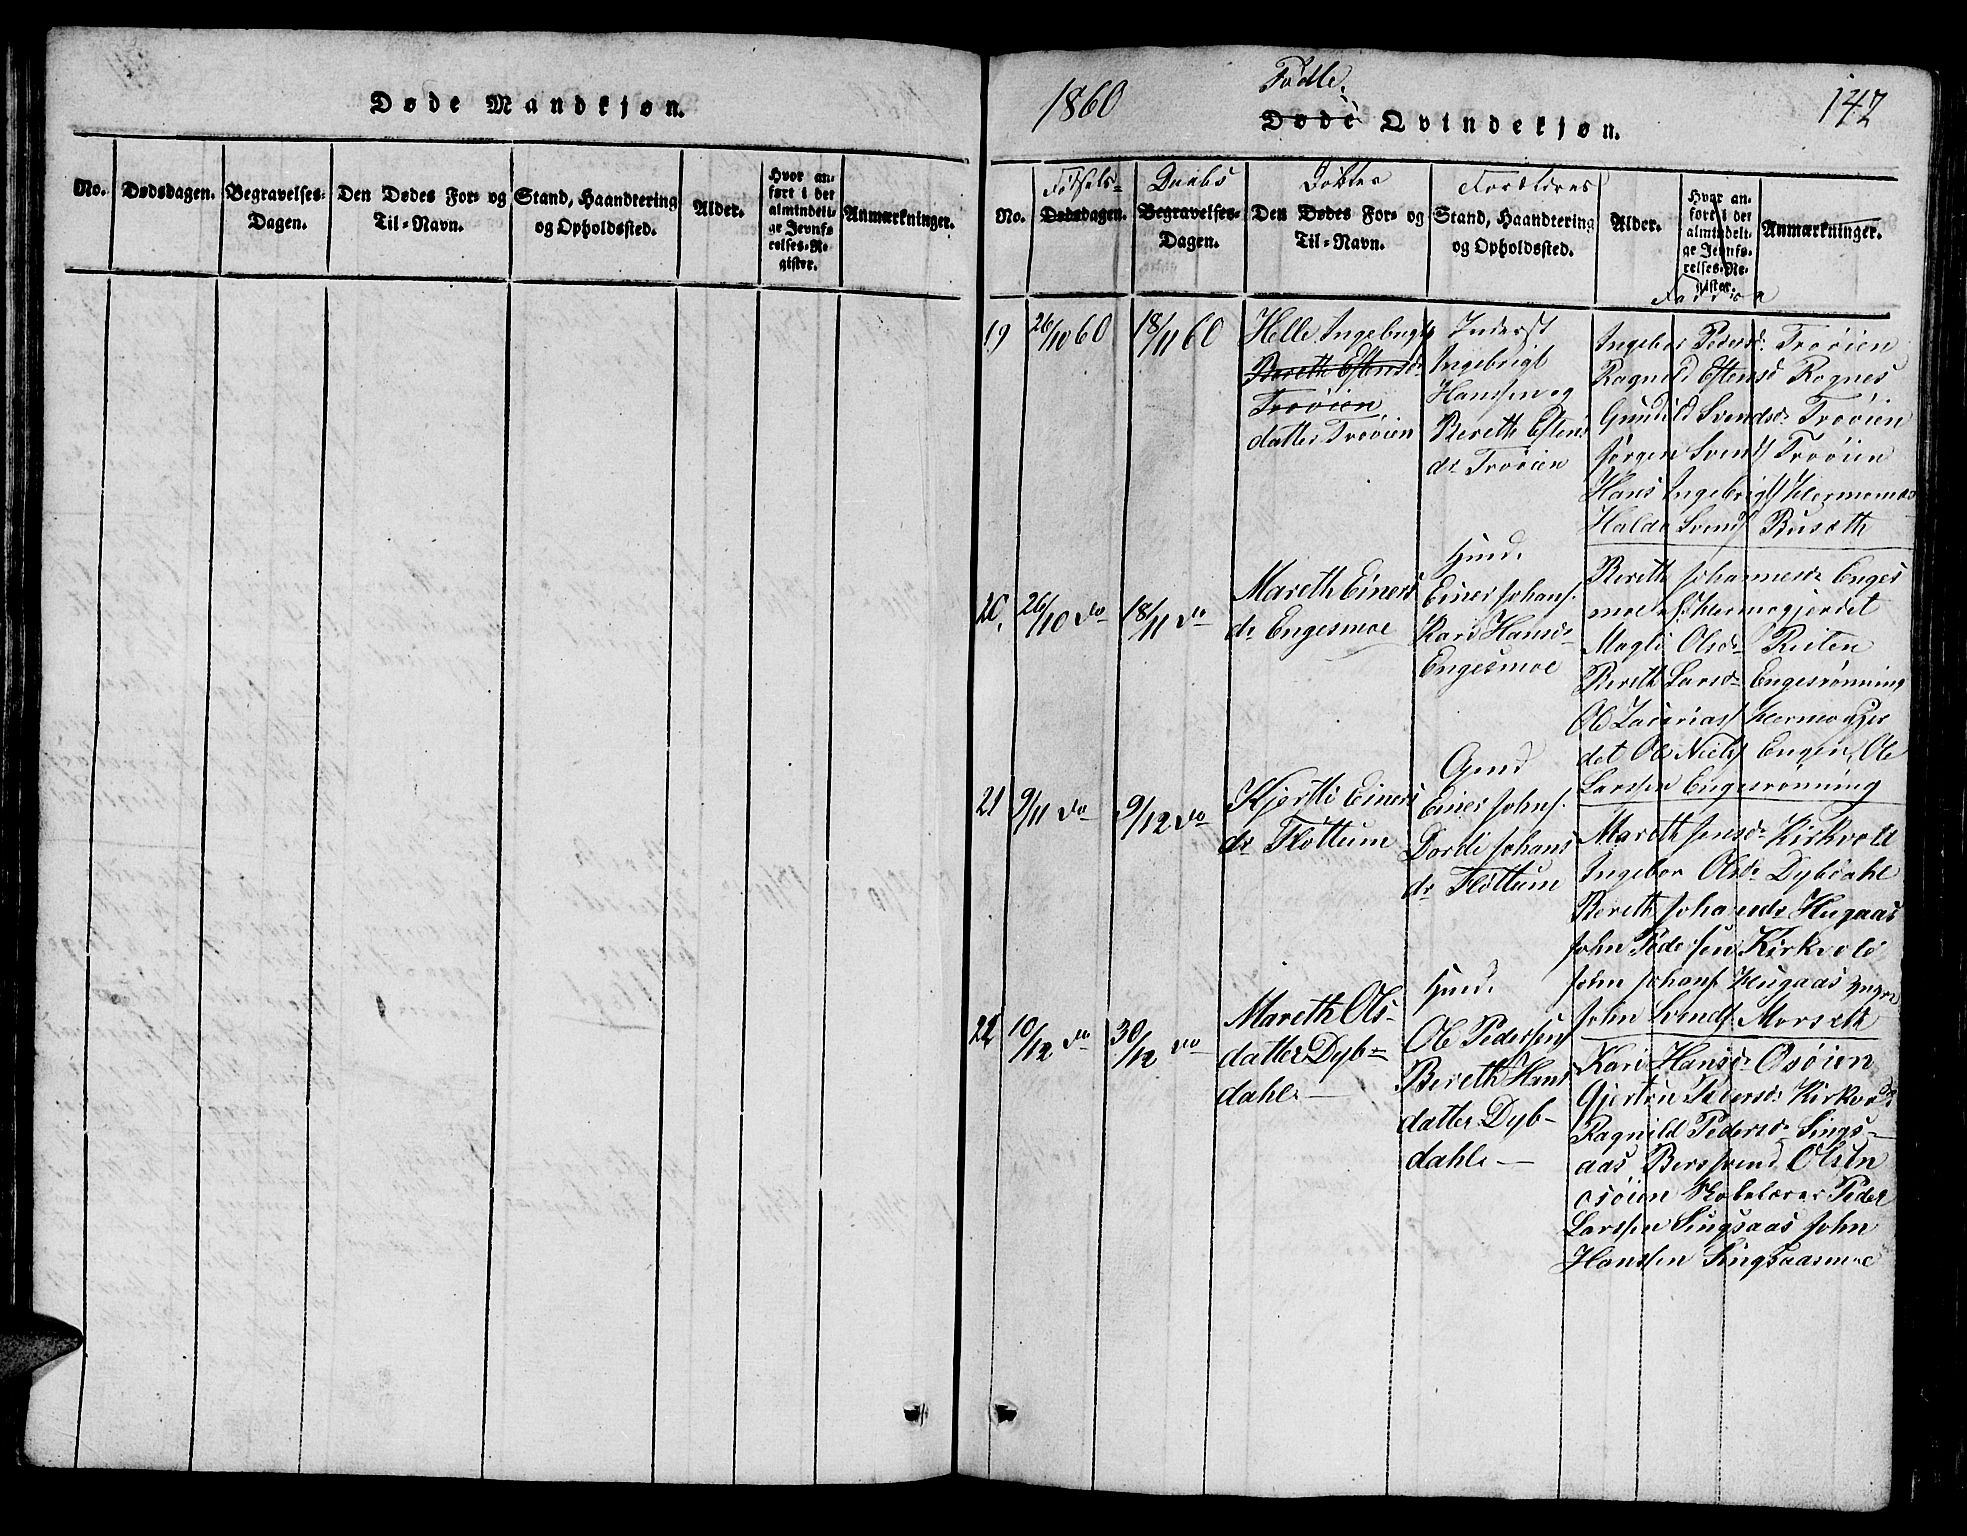 Døde Mandkjøn.
No. Dødsdagen. Begravelses-Dagen. Den Dødes For- og Til-Navn. Stand, Haandtering og Opholdssted. Alder. Hvor anført i det almindelige Jevnførelses-Register. Anmærkninger.
1860
Fødte
147
Døde Qvindekjøn.
Fødsels- Daabs Forældrenes
No. Dødsdagen. Begravelses-Dagen. Den Dødes For- og Til-Navn. Stand, Haandtering og Opholdssted. Alder. Hvor anført i det almindelige Jevnførelses-Register. Anmærkninger.
Faddere
19 26/10 60 18/11 60
Helle Ingebrigts
Bereth Estensdr
Trøøien
datter Trøøien
Inderst
Ingebrigt
Hanssen og
Bereth Estens
dr Trøøien
Ingebor Pedersdr Trøøien
Ragnild Estensd Rognes
Gunild Svendsdr Trøøien
Jørgen Svends Trøøien
Hans Ingebrigts
Haldo Svends Buseth
20. 26/10 do 18/11 do
Mareth Einers
dr Engesmoe
Huusd.
Einer Johans.
Kari Hansdr
Engesmoe
Bereth Johannesdr Enges
moe
Magli Olsdr Reiten
Bereth Larsdr Engesrønning
Ole
det Ole Niels Engen, Ole
Larssen Engesrønning
21 9/11 do 9/12 do
Kjersti Einers
dr Fløttum
Gmd
Einer Johns.
Dordi Johans
dr Fløttum
Mareth Jensdr Kirkvold
Ingebor Olsdr Dybdahl
Bereth Johansdr Hugaas
John Pedersen Kirkvold
John Johans Hugaas yngre
John Svends Morseth
22 10/12 do 30/12 do
Mareth Ols-
datter Dyb-
dahl. —
Huusd.
Ole Pederssen
Bereth Hans
datter Dyb-
dahl. —
Kari Hansdr Osøien
Pedersdr Kirkvold
Ragnild Pedersdr Sings-
aas Olsen
osøien Skolelærer Peder
Larssen Singsaas John
Hanssen Singsaasmoe